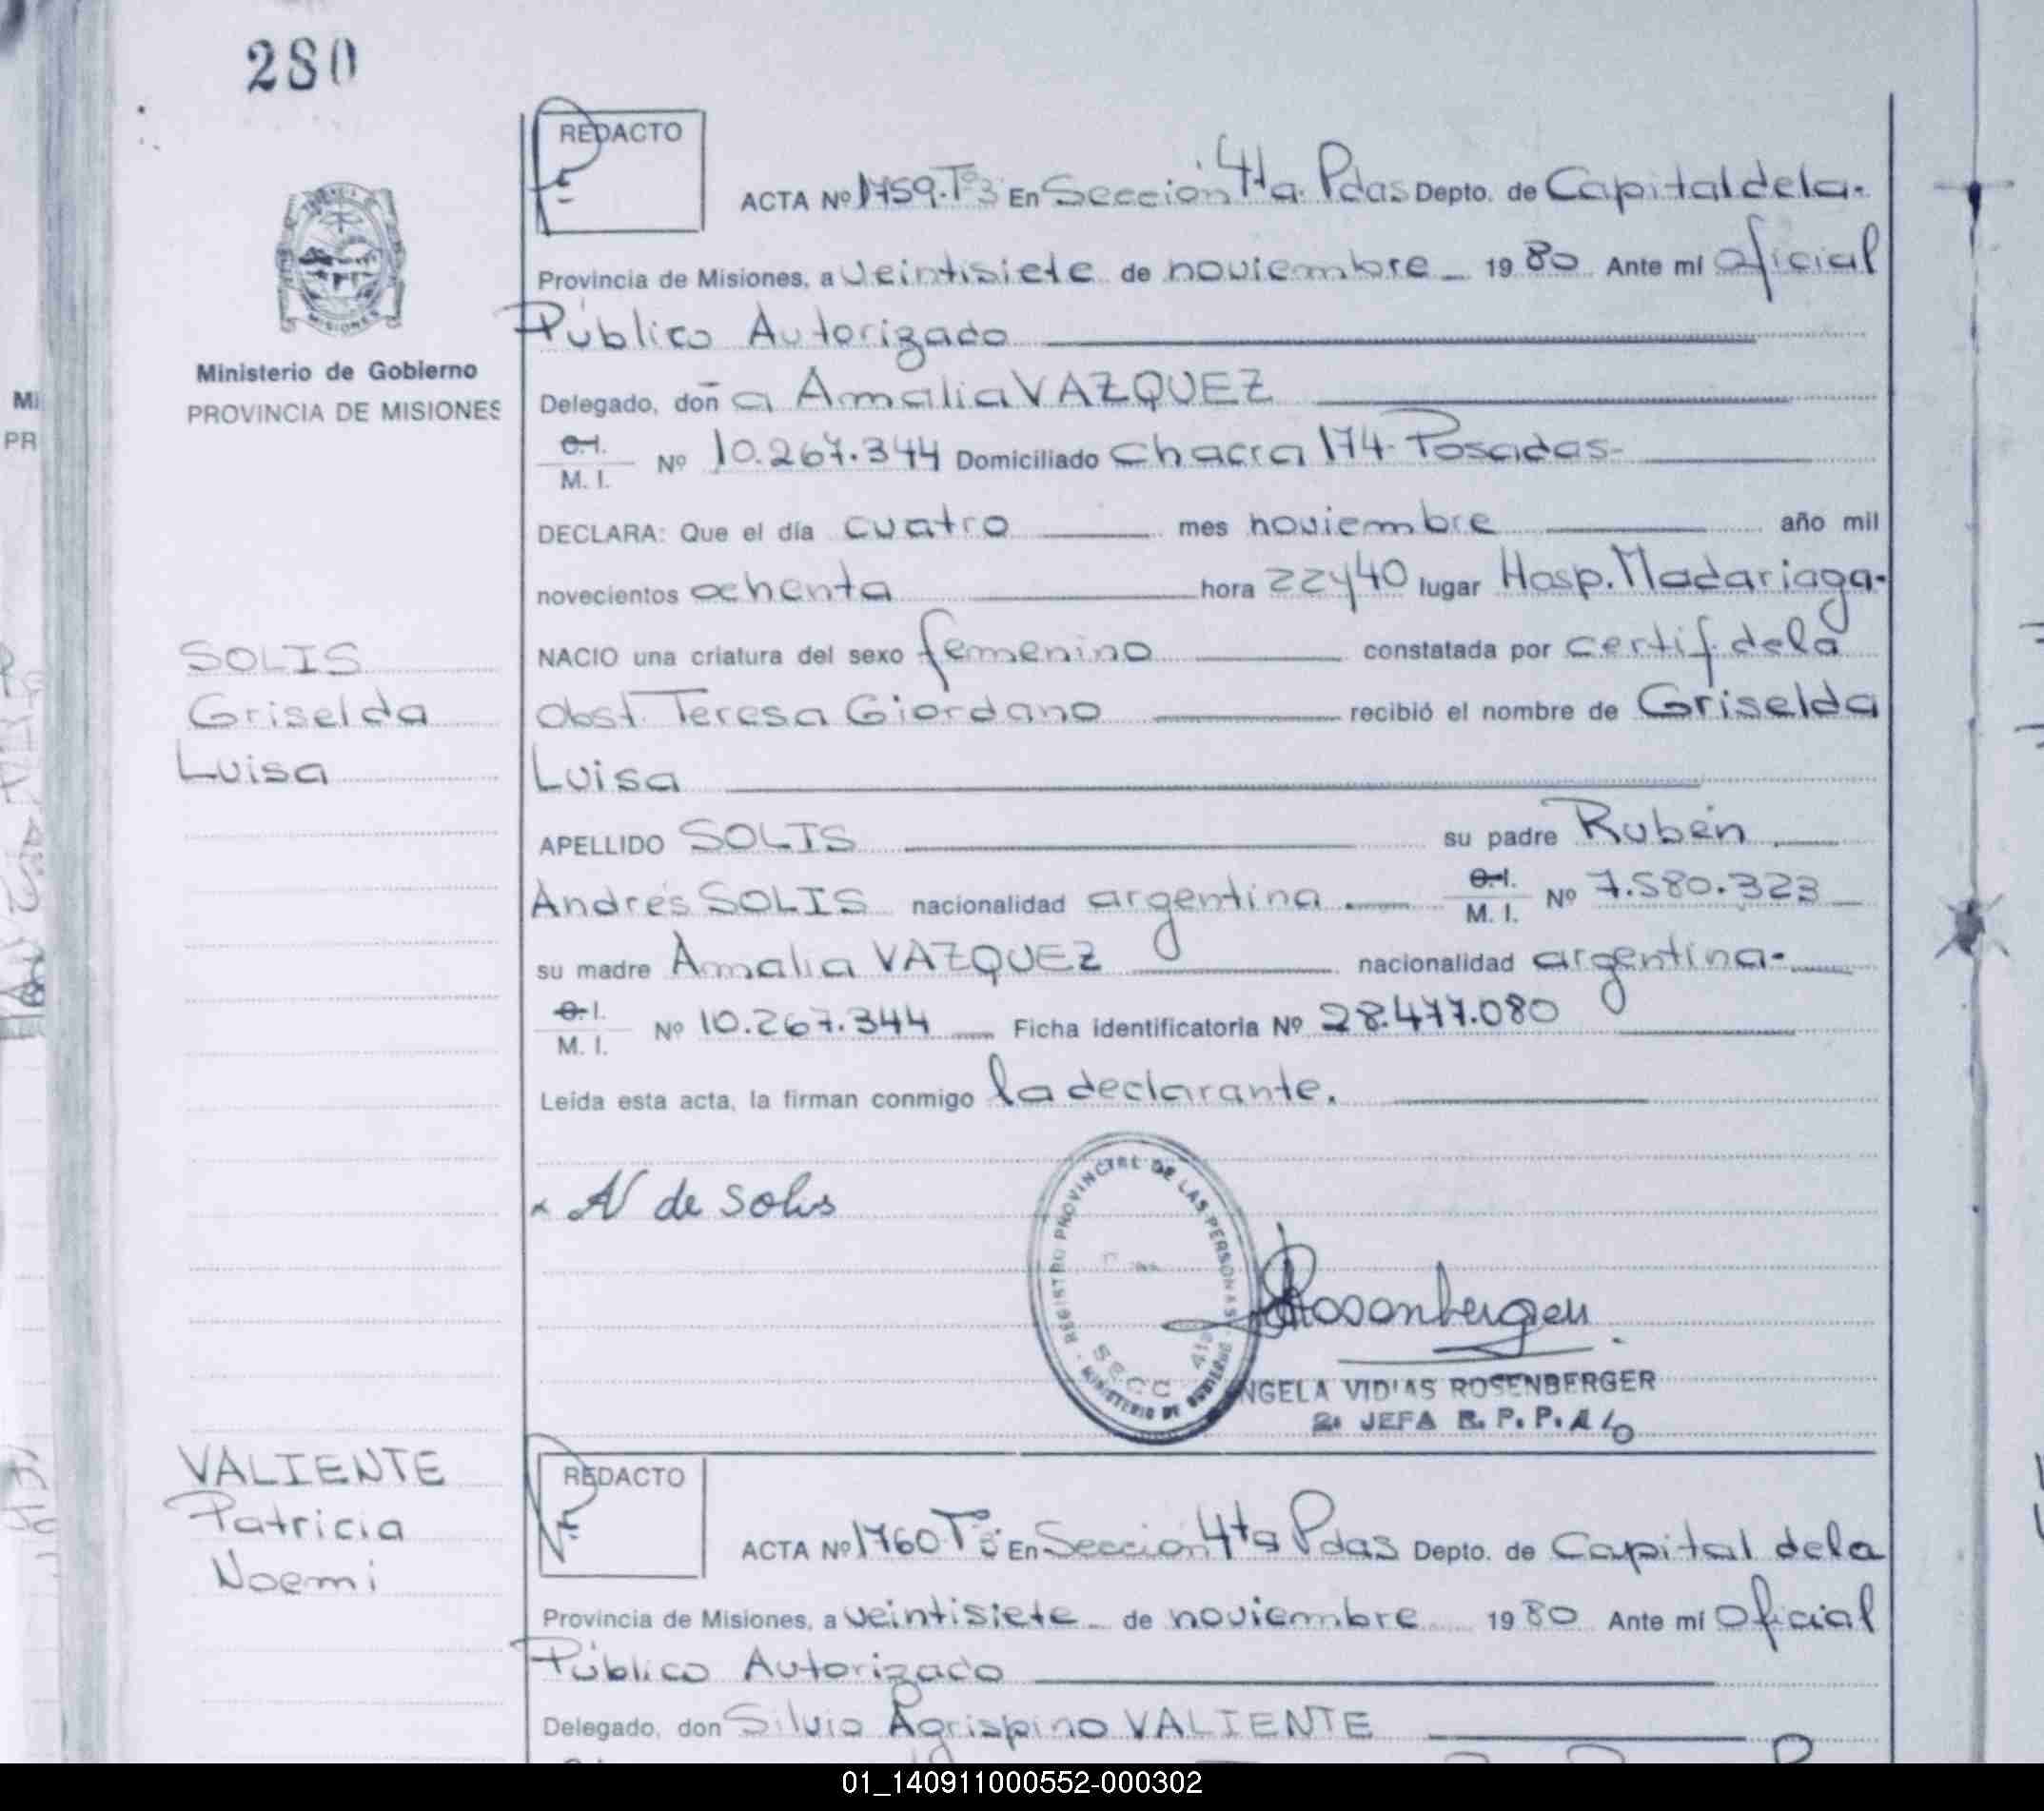 280
REDACTO
ACTA Nº 1759-Tº3 En Sección 4ta. Pdas Depto. de Capital de la.
Provincia de Misiones, a veintisiete de noviembre 1980 Ante mí Oficial
Público Autorizado
Ministerio de Gobierno
PROVINCIA DE MISIONES
Delegado, doña Amalia VAZQUEZ
C.I.
M. I. Nº 10.267.344 Domiciliado Chacra 174- Posadas-
DECLARA: Que el día cuatro mes noviembre año mil
novecientos ochenta hora 22y40 lugar Hosp. Madariaga.
NACIO una criatura del sexo femenino constatada por certif. de la
Obst. Teresa Giordano recibió el nombre de Griselda
Luisa
SOLIS
Griselda
Luisa
APELLIDO SOLIS su padre Rubén
Andrés SOLIS nacionalidad argentina C.I.
M. I. Nº 7.580.323
su madre Amalia VAZQUEZ nacionalidad argentina-
C.I.
M. I. Nº 10.267.344 Ficha identificatoria Nº 28.477.080
Leída esta acta, la firman conmigo la declarante.
x AV de Solis
REGISTRO PROVINCIAL DE LAS PERSONAS - MINISTERIO DE GOBIERNO -
SECC 4ta
Rosenberger
NGELA VIDIAS ROSENBERGER
2a JEFA R. P. P.
VALIENTE
Patricia
Noemi
REDACTO
ACTA Nº 1760 Tº3 En Sección 4ta Pdas Depto. de Capital de la
Provincia de Misiones, a veintisiete de noviembre 1980 Ante mí Oficial
Público Autorizado
Delegado, don Silvio Agrispino VALIENTE
01_140911000552-000302